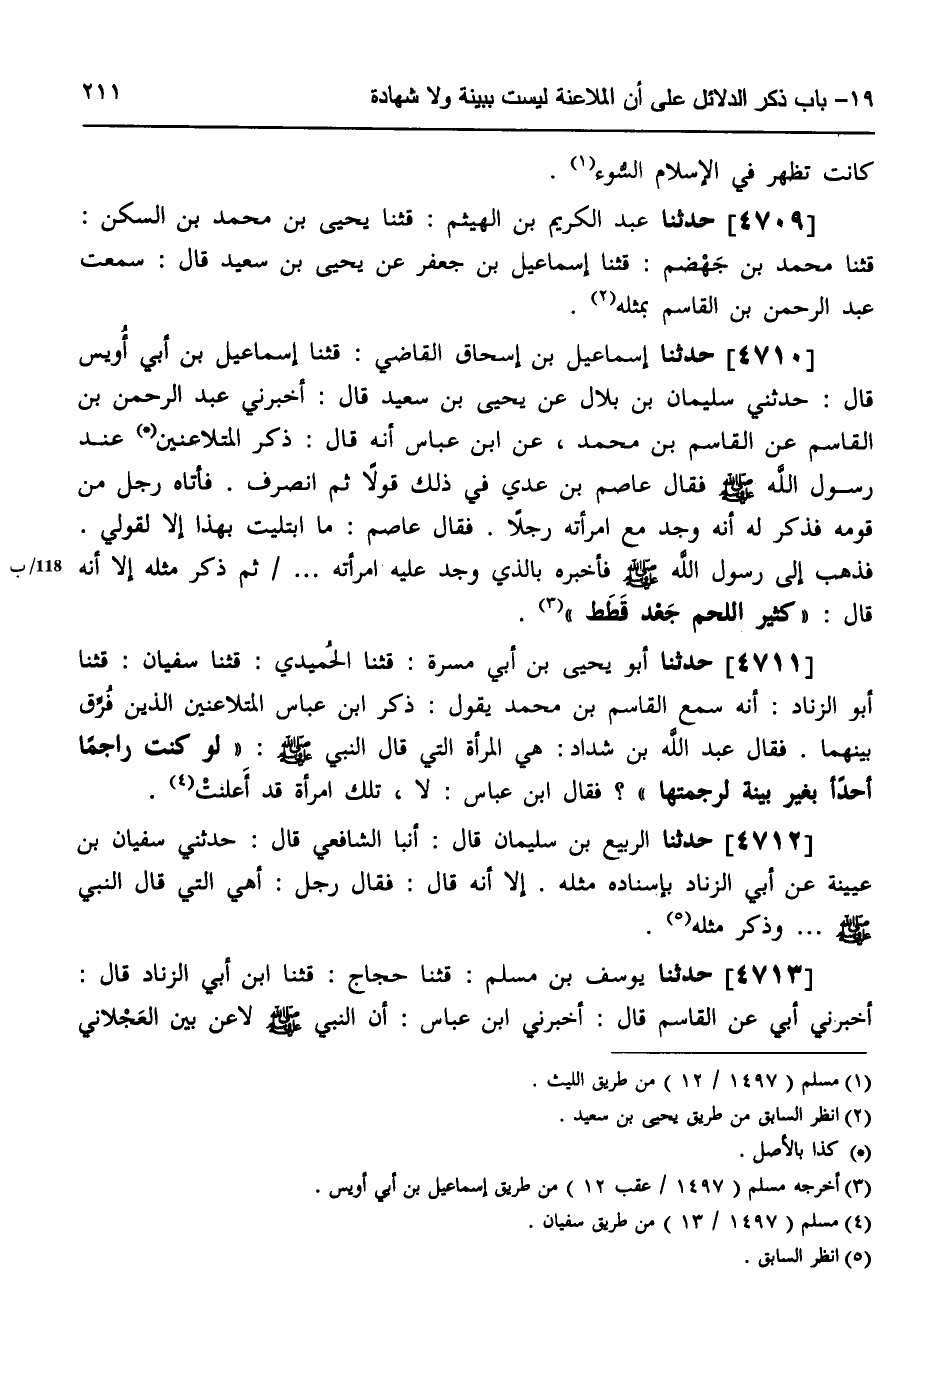 ١٩- باب ذكر الدلائل على أن الملاعنة ليست ببينة ولا شهادة ٢١١
كانت تظهر في الإسلام السُّوء(١) .
[٤٧٠٩] حدثنا عبد الكريم بن الهيثم : قثنا يحيى بن محمد بن السكن :
قثنا محمد بن جَهْضم : قثنا إسماعيل بن جعفر عن يحيى بن سعيد قال : سمعت
عبد الرحمن بن القاسم بمثله(٢) .
[٤٧١٠] حدثنا إسماعيل بن إسحاق القاضي : قثنا إسماعيل بن أبي أُويس
قال : حدثني سليمان بن بلال عن يحيى بن سعيد قال : أخبرني عبد الرحمن بن
القاسم عن القاسم بن محمد ، عن ابن عباس أنه قال : ذكر المتلاعنين(*) عنـد
رسـول اللَّه ﷺ فقال عاصم بن عدي في ذلك قولًا ثم انصرف . فأتاه رجل من
قومه فذكر له أنه وجد مع امرأته رجلًا . فقال عاصم : ما ابتليت بهذا إلا لقولي .
فذهب إلى رسول اللَّه ﷺ فأخبره بالذي وجد عليه امرأته ... / ثم ذكر مثله إلا أنه 118/ب
قال : « كثير اللحم جَعْد قَطَط »(٣) .
[٤٧١١] حدثنا أبو يحيى بن أبي مسرة : قثنا الحُميدي : قثنا سفيان : قثنا
أبو الزناد : أنه سمع القاسم بن محمد يقول : ذكر ابن عباس المتلاعنين الذين فُرِّق
بينهما . فقال عبد اللَّه بن شداد : هي المرأة التي قال النبي ﷺ : « لو كنت راجمًا
أحدًا بغير بينة لرجمتها » ؟ فقال ابن عباس : لا ، تلك امرأة قد أَعلنتْ(٤) .
[٤٧١٢] حدثنا الربيع بن سليمان قال : أنبا الشافعي قال : حدثني سفيان بن
عيينة عن أبي الزناد بإسناده مثله . إلا أنه قال : فقال رجل : أهي التي قال النبي
ﷺ ... وذكر مثله(٥) .
[٤٧١٣] حدثنا يوسف بن مسلم : قثنا حجاج : قثنا ابن أبي الزناد قال :
أخبرني أبي عن القاسم قال : أخبرني ابن عباس : أن النبي ﷺ لاعن بين العَجْلاني
(١) مسلم ( ١٤٩٧ / ١٢ ) من طريق الليث .
(٢) انظر السابق من طريق يحيى بن سعيد .
(*) كذا بالأصل .
(٣) أخرجه مسلم ( ١٤٩٧ / عقب ١٢ ) من طريق إسماعيل بن أبي أويس .
(٤) مسلم ( ١٤٩٧ / ١٣ ) من طريق سفيان .
(٥) انظر السابق .